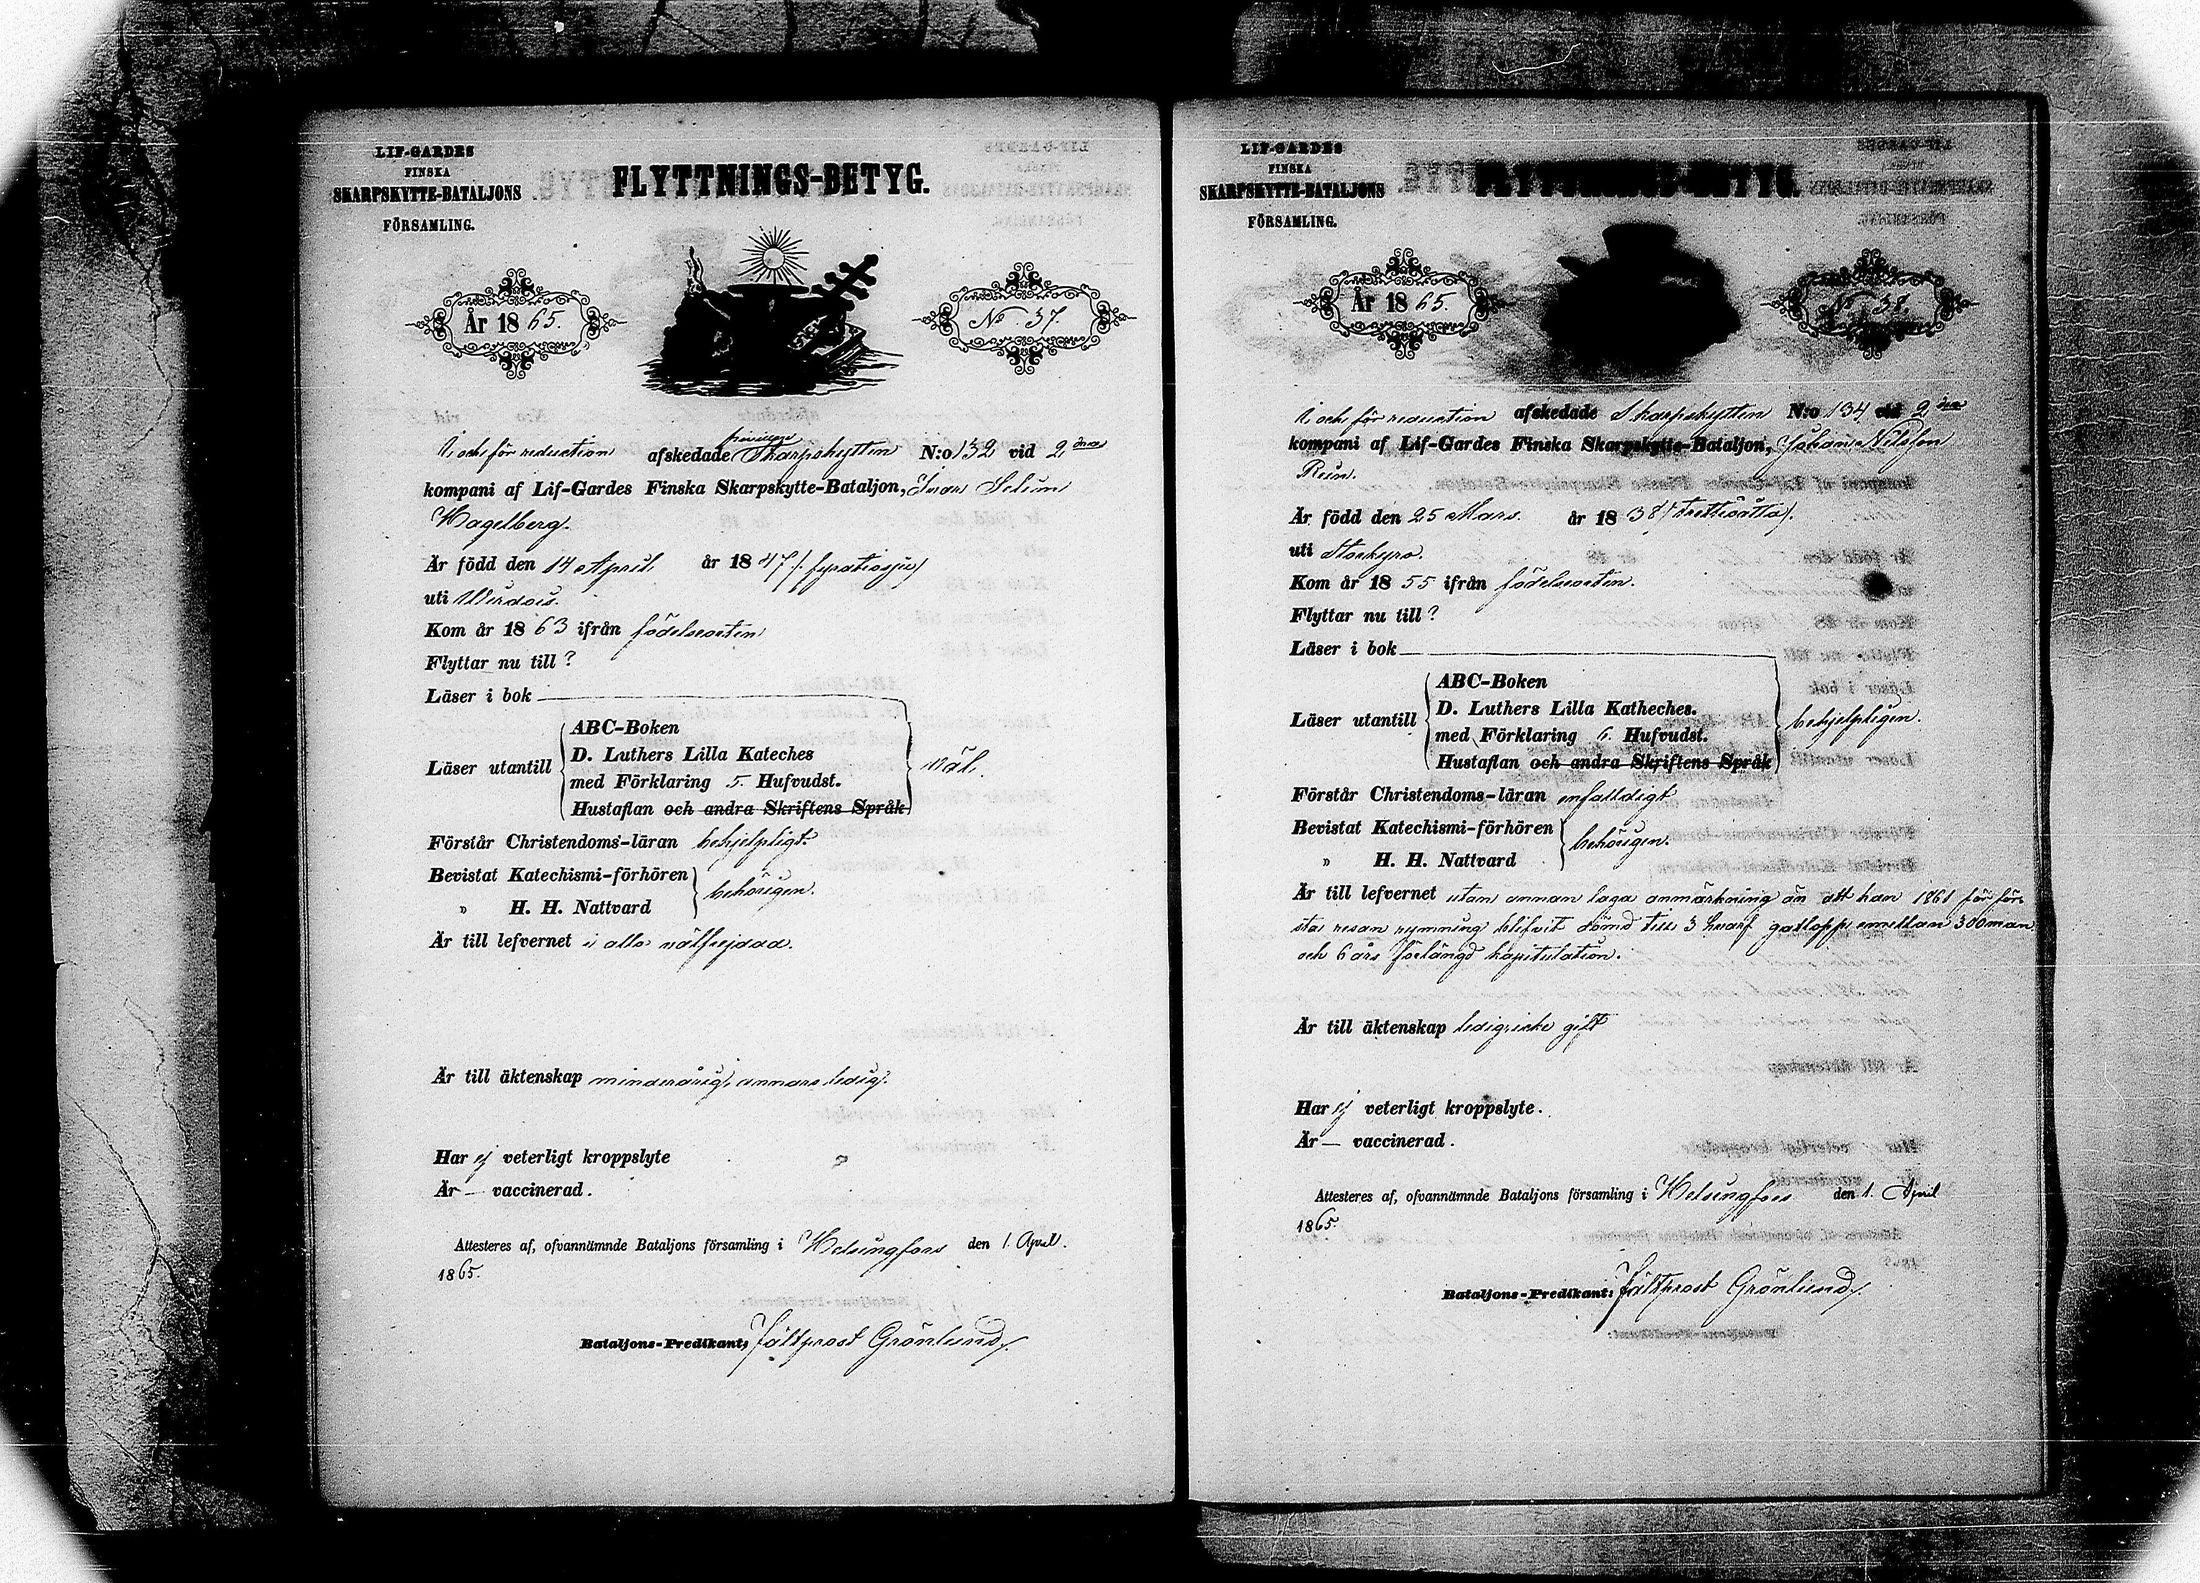 LIF-GARDES
FINSKA
SKARPSKYTTE-BATALJONS
FÖRSAMLING.
FLYTTNINGS-BETYG.
År 1865.
No. 37.
I och för reduction afskedade Skarpskytten N:o 132 vid 2 dra
kompani af Lif-Gardes Finska Skarpskytte-Bataljon, Ivar Selim
Hagelberg.
Är född den 14 April år 1847 /: fyratiosju /
uti Wirdois.
Kom år 1863 ifrån födelseorten
Flyttar nu till ?
Läser i bok
ABC-Boken
D. Luthers Lilla Kateches
Läser utantill
med Förklaring 5. Hufvudst.
Hustaflan och andra Skriftens Språk
väl.
Förstår Christendoms-läran behjelpligt.
Bevistat Katechismi-förhören
behörigen.
" H. H. Nattvard
Är till lefvernet i allo välfrejdad.
Är till äktenskap minderårig, annars ledig.
Har ej veterligt kroppslyte
Är — vaccinerad.
Attesteres af, ofvannämnde Bataljons församling i Helsingfors den 1. April.
1865.
Bataljons-Predikant: Fältprost Grönlund /.
LIF-GARDES
FINSKA
SKARPSKYTTE-BATALJONS
FÖRSAMLING.
FLYTTNINGS-BETYG.
År 1865.
No 38.
I och för reduction afskedade Skarpskytten N:o 134 vid 2 dra
kompani af Lif-Gardes Finska Skarpskytte-Bataljon, Johan Nilsson
Ren.
Är född den 25 Mars. år 1838 / trettioåtta /.
uti Storkyro.
Kom år 1855 ifrån födelseorten.
Flyttar nu till ?
Läser i bok
ABC-Boken
D. Luthers Lilla Katheches.
Läser utantill
med Förklaring 6. Hufvudst.
Hustaflan och andra Skriftens Språk
behjelpligen.
Förstår Christendoms-läran enfalldigt
Bevistat Katechismi-förhören
behörigen.
" H. H. Nattvard
Är till lefvernet utan annan laga anmärkning än att han 1861 för för-
sta resan rymning blifvit dömd till 3 hvarf gatlopp emellan 300 man
och 6 års förlängd kapitulation.
Är till äktenskap ledig, icke gift
Har ej veterligt kroppslyte.
Är — vaccinerad.
Attesteres af, ofvannämnde Bataljons församling i Helsingfors den 1. April
1865.
Bataljons-Predikant: Fältprost Grönlund /.